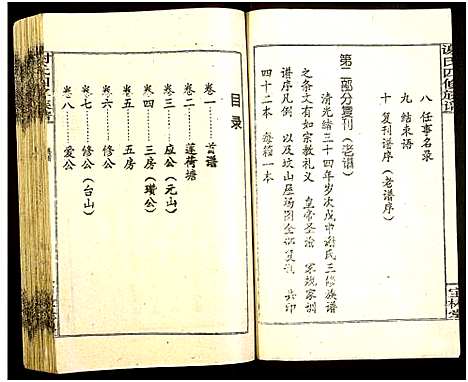 謝氏四修族譜
八 任事名录
九 结束语
十 复刊谱序（老谱序）
第二部分复刊（老谱）
清光绪三十四年岁次戊申谢氏三修族谱
之条文有如宗教礼义 皇帝圣谕 家规家训
谱序凡例 以及坟山屋场图全部复刊 共印
四十二本 每箱一本
宝树堂
目录
卷一 首谱
卷二 莲荷塘
卷三 应公（元山）
卷四 三房（瓒公）
卷五 五房
卷六 修公
卷七 修公（台山）
卷八 爱公